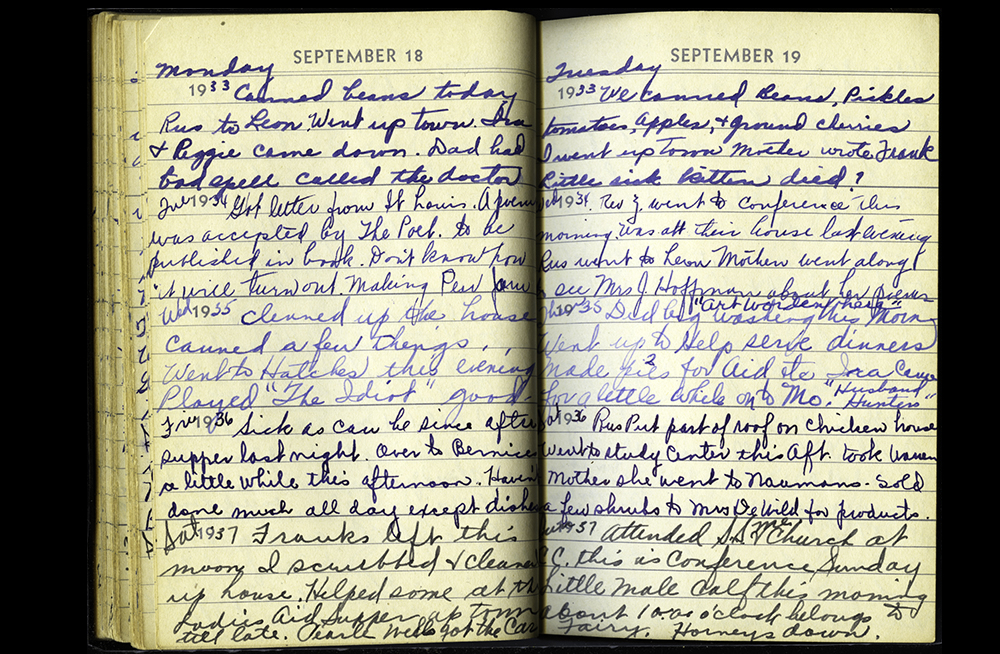 SEPTEMBER 18
Monday
1933 Canned beans today
Rus to Leon. Went up town. Ira
& Peggie came down. Dad had
bad spell called the doctor
Tue 1934 Got letter from St Louis. A poem
was accepted by The Poet. to be
published in book. Don't know how
it will turn out. Making Pear Jam
Wed 1935 cleaned up the house
canned a few things.
Went to Hatches this evening
Played "The Idiot" good.
Fri 1936 Sick as can be since after
supper last night. Over to Bernices
a little while this afternoon. Haven't
done much all day except dishes
Sat 1937 Franks left this
morn I scrubbed & cleaned
up house. Helped some at the
Ladies Aid Supper up town
till late. Pearle Wells got the Car
SEPTEMBER 19
Tuesday
1933 We canned Beans, Pickles
tomatoes, apples, & ground cherries
I went up Town Mother wrote Frank
Little sick Kitten died?
Wed 1934. Rev Z. went to Conference this
morning was at their house last evening
Rus went to Leon Mother went along
to see Mrs J Hoffman about her
"Art Worsent here"
1935 Did big washing this Morn
Went up to Help serve dinners
Made 3 pies for Aid Ira Came
for a little while on to Mo. "Husband
Hunters"
Sat 1936 Rus Put part of roof on chicken house
Went to study Center this Aft. took
Mother she went to Naumans. Sold
a few shrubs to Mrs DeWild for products.
1937 Attended S.S. & Church at
this is Conference Sunday
Little male calf this morning
about 10:00 o'clock belongs to
Fairy. Horneys down.